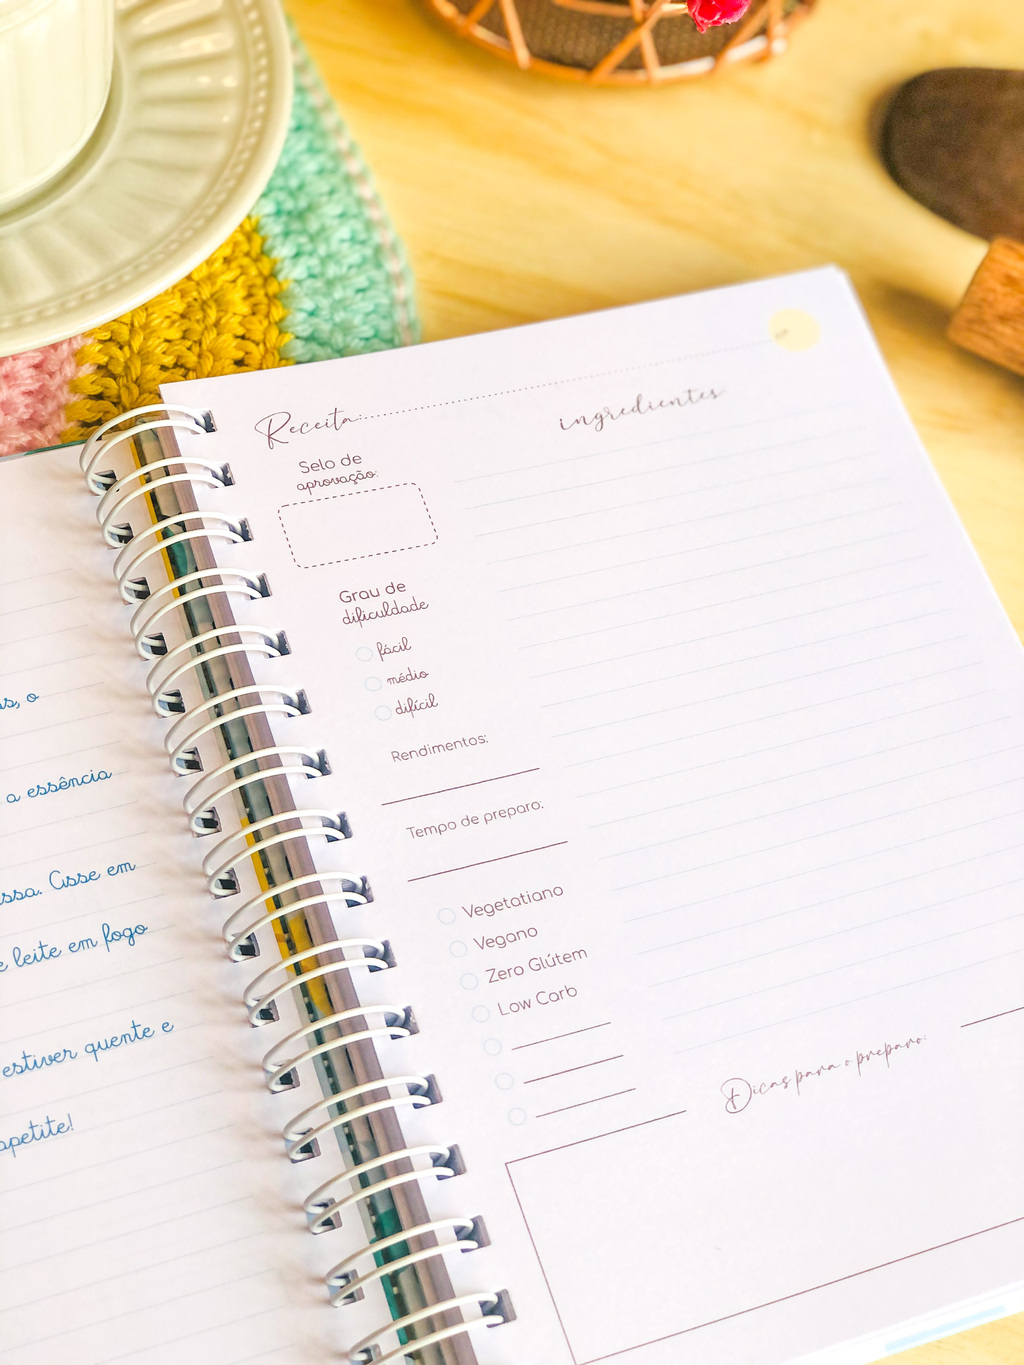 s, o
a essência
ssa. Asse em
e leite em fogo
estiver quente e
apetite!
Receita:
ingredientes
Selo de
aprovação:
Grau de
dificuldade
fácil
médio
difícil
Rendimentos:
Tempo de preparo:
Vegetatiano
Vegano
Zero Glútem
Low Carb
Dicas para o preparo: